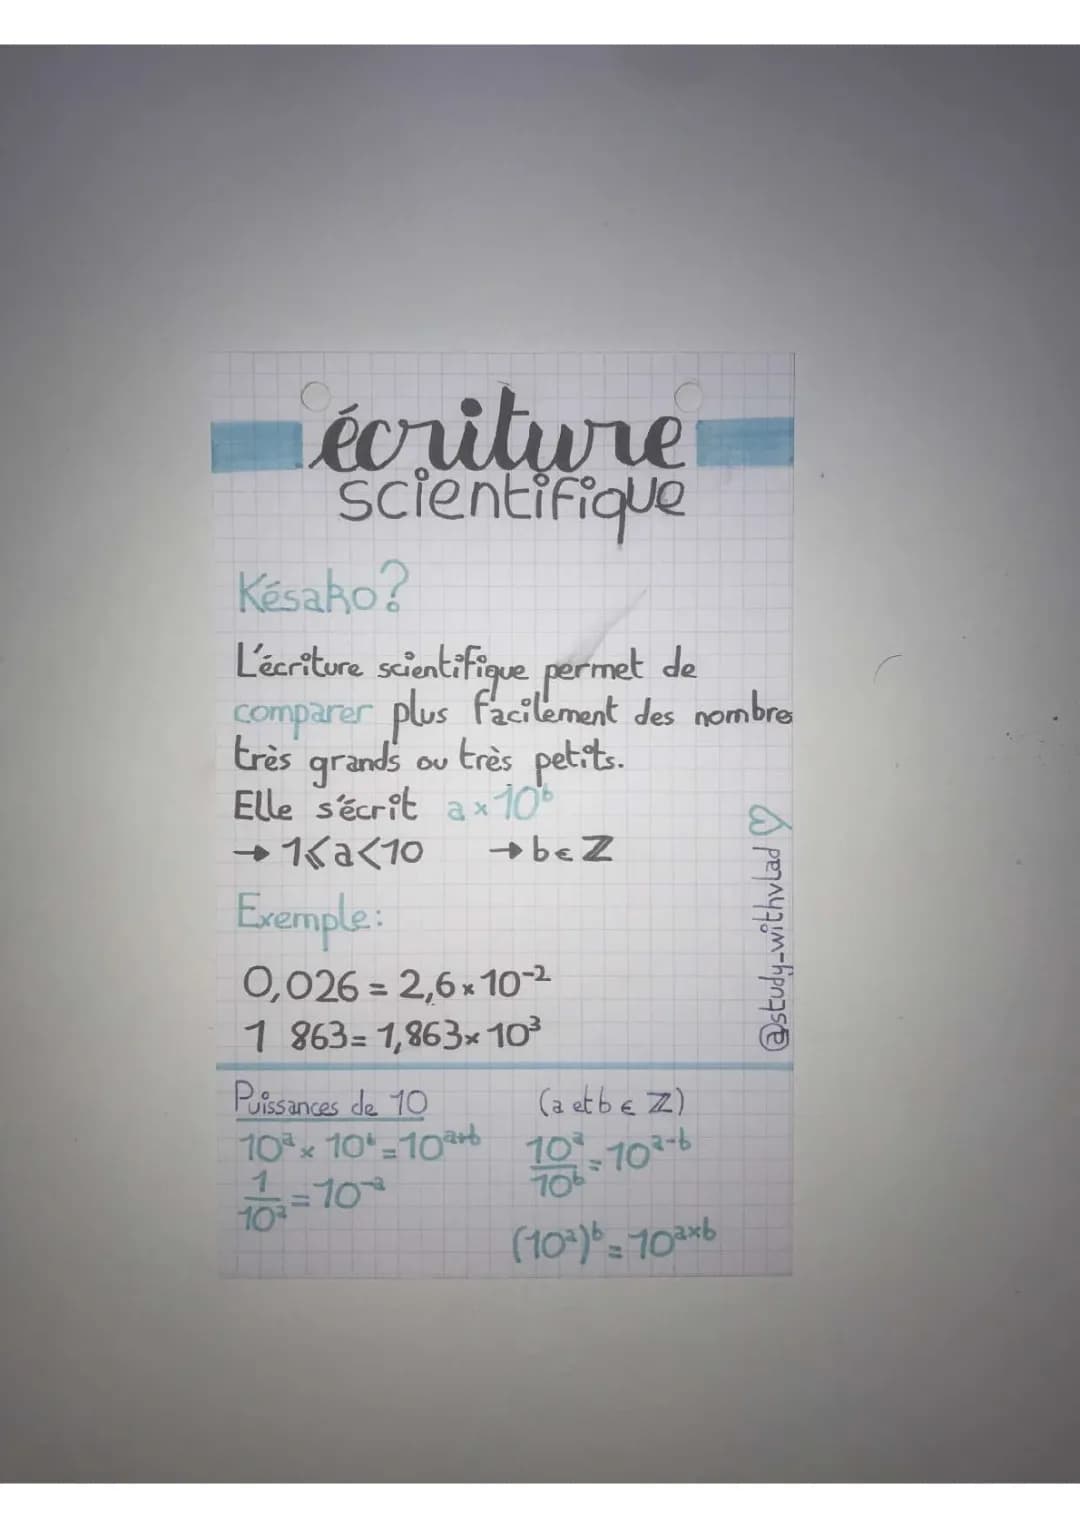 écriture
scientifique
Késako?
L'écriture scientifique permet de
comparer plus facilement des nombres
très grands ou très petits.
Elle s'écrit a × 10ᵇ
→ 1⩽a<10 → b∈Z
Exemple:
0,026 = 2,6 × 10⁻²
1 863 = 1,863 × 10³
@study_withvlad ♡
Puissances de 10 (a et b ∈ ℤ)
10ᵃ × 10ᵇ = 10ᵃ⁺ᵇ 10ᵃ/10ᵇ = 10ᵃ⁻ᵇ
1/10ᵃ = 10⁻ᵃ
(10ᵃ)ᵇ = 10ᵃˣᵇ